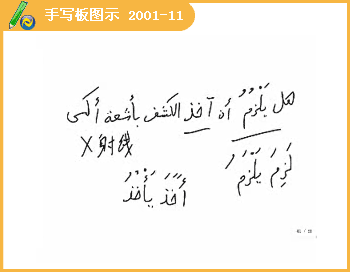 手写板图示 2001-11
هل يَلْزَمُ أن آخذ الكشف بأشعة أكس
X射线
لَزِمَ يَلْزَمُ
أَخَذَ يَأْخُذُ